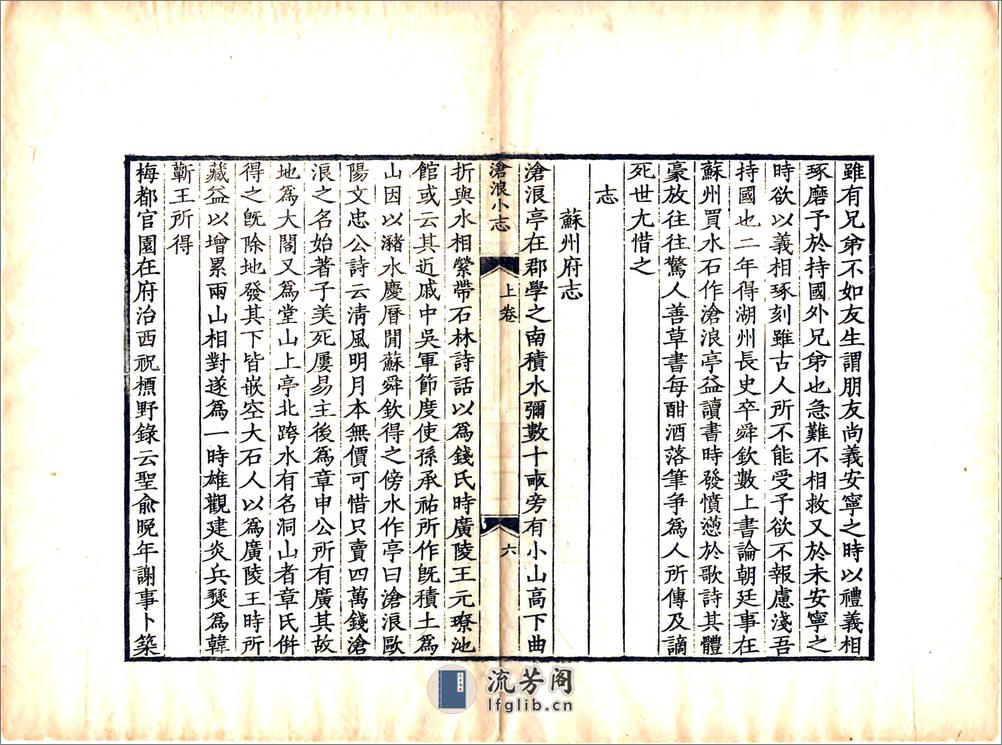 雖有兄弟不如友生謂朋友尚義安寧之時以禮義相
琢磨予於持國外兄弟也急難不相救又於未安寧之
時欲以義相琢刻雖古人所不能受予欲不報慮淺吾
持國也二年得湖州長史卒舜欽數上書論朝廷事在
蘇州買水石作滄浪亭益讀書時發憤懣於歌詩其體
豪放往往驚人善草書每酣酒落筆爭為人所傳及謫
死世尤惜之
志
蘇州府志
滄浪亭在郡學之南積水彌數十畝旁有小山高下曲
滄浪小志
上卷
六
折與水相縈帶石林詩話以為錢氏時廣陵王元璙池
館或云其近戚中吳軍節度使孫承祐所作既積土為
山因以瀦水慶曆閒蘇舜欽得之傍水作亭曰滄浪歐
陽文忠公詩云清風明月本無價可惜只賣四萬錢滄
浪之名始著子美死屢易主後為章申公所有廣其故
地為大閣又為堂山上亭北跨水有名洞山者章氏併
得之既除地發其下皆嵌空大石人以為廣陵王時所
藏益以增累兩山相對遂為一時雄觀建炎兵燹為韓
蘄王所得
梅都官園在府治西祝櫄野錄云聖俞晚年謝事卜築
流芳阁
lfglib.cn